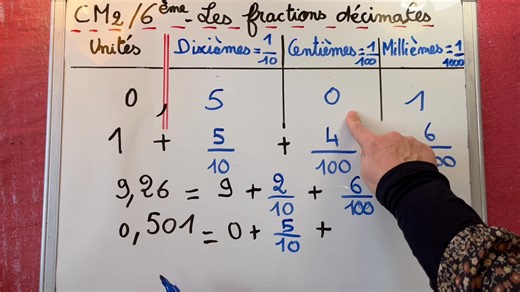 CM2/6ème - Les fractions décimales
Unités Dixièmes = 1/10 Centièmes = 1/100 Millièmes = 1/1000
0, 5 0 1
1 + 5/10 + 4/100 6
9,26 = 9 + 2/10 + 6/100
0,501 = 0 + 5/10 +